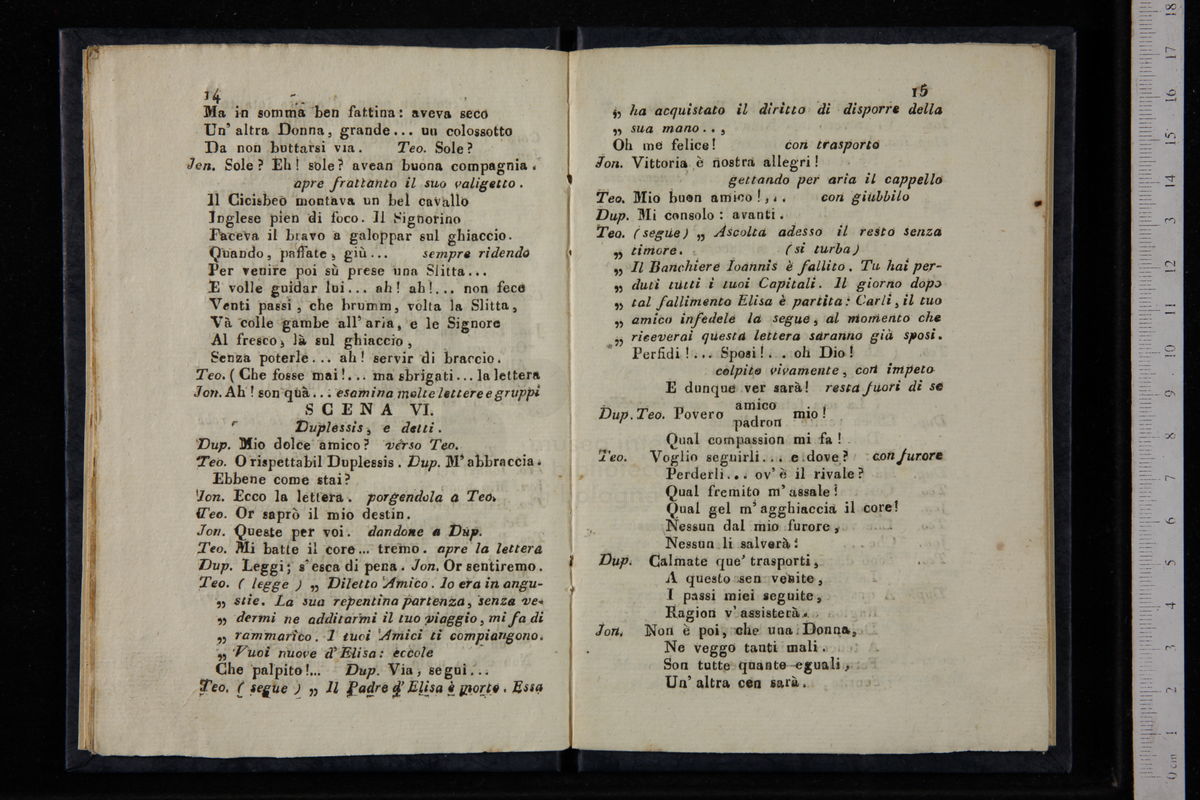 14
Ma in somma ben fattina: aveva seco
Un' altra Donna, grande... un colossotto
Da non buttarsi via. Teo. Sole?
Jen. Sole? Eh! sole? avean buona compagnia.
apre frattanto il suo valigetto.
Il Cicisbeo montava un bel cavallo
Inglese pien di foco. Il Signorino
Faceva il bravo a galoppar sul ghiaccio.
Quando, paffate, giù... sempre ridendo
Per venire poi sù prese una Slitta...
E volle guidar lui... ah! ah!... non fece
Venti passi, che brumm, volta la Slitta,
Và colle gambe all' aria, e le Signore
Al fresco, là sul ghiaccio,
Senza poterle... ah! servir di braccio.
Teo. (Che fosse mai!... ma sbrigati... la lettera
Jon. Ah! son quà... esamina molte lettere e gruppi
SCENA VI.
Duplessis, e detti.
Dup. Mio dolce amico? verso Teo.
Teo. O rispettabil Duplessis. Dup. M' abbraccia.
Ebbene come stai?
Jon. Ecco la lettera. porgendola a Teo.
Teo. Or saprò il mio destin.
Jon. Queste per voi. dandone a Dup.
Teo. Mi batte il core... tremo. apre la lettera
Dup. Leggi; s' esca di pena. Jon. Or sentiremo.
Teo. ( legge ) „ Diletto Amico. Io era in angu-
„ stie. La sua repentina partenza, senza ve-
„ dermi ne additarmi il tuo viaggio, mi fa di
„ rammarico. I tuoi Amici ti compiangono.
„ Vuoi nuove d' Elisa: eccole
Che palpito!... Dup. Via, segui...
Teo. ( segue ) „ Il Padre d' Elisa è morto. Essa
15
„ ha acquistato il diritto di disporre della
„ sua mano..,
Oh me felice! con trasporto
Jon. Vittoria è nostra allegri!
gettando per aria il cappello
Teo. Mio buon amico!,.. con giubbilo
Dup. Mi consolo: avanti.
Teo. (segue) „ Ascolta adesso il resto senza
„ timore. (si turba)
„ Il Banchiere Ioannis è fallito. Tu hai per-
„ duti tutti i tuoi Capitali. Il giorno dopo
„ tal fallimento Elisa è partita: Carli, il tuo
„ amico infedele la segue, al momento che
„ riceverai questa lettera saranno già sposi.
Perfidi!... Sposi!... oh Dio!
colpito vivamente, con impeto
E dunque ver sarà! resta fuori di se
Dup. Teo. Povero amico mio!
padron
Qual compassion mi fa!
Teo. Voglio seguirli... e dove? con furore
Perderli... ov' è il rivale?
Qual fremito m' assale!
Qual gel m' agghiaccia il core!
Nessun dal mio furore,
Nessun li salverà!
Dup. Calmate que' trasporti,
A questo sen venite,
I passi miei seguite,
Ragion v' assisterà.
Jon. Non è poi, che una Donna,
Ne veggo tanti mali.
Son tutte quante eguali,
Un' altra cen sarà.